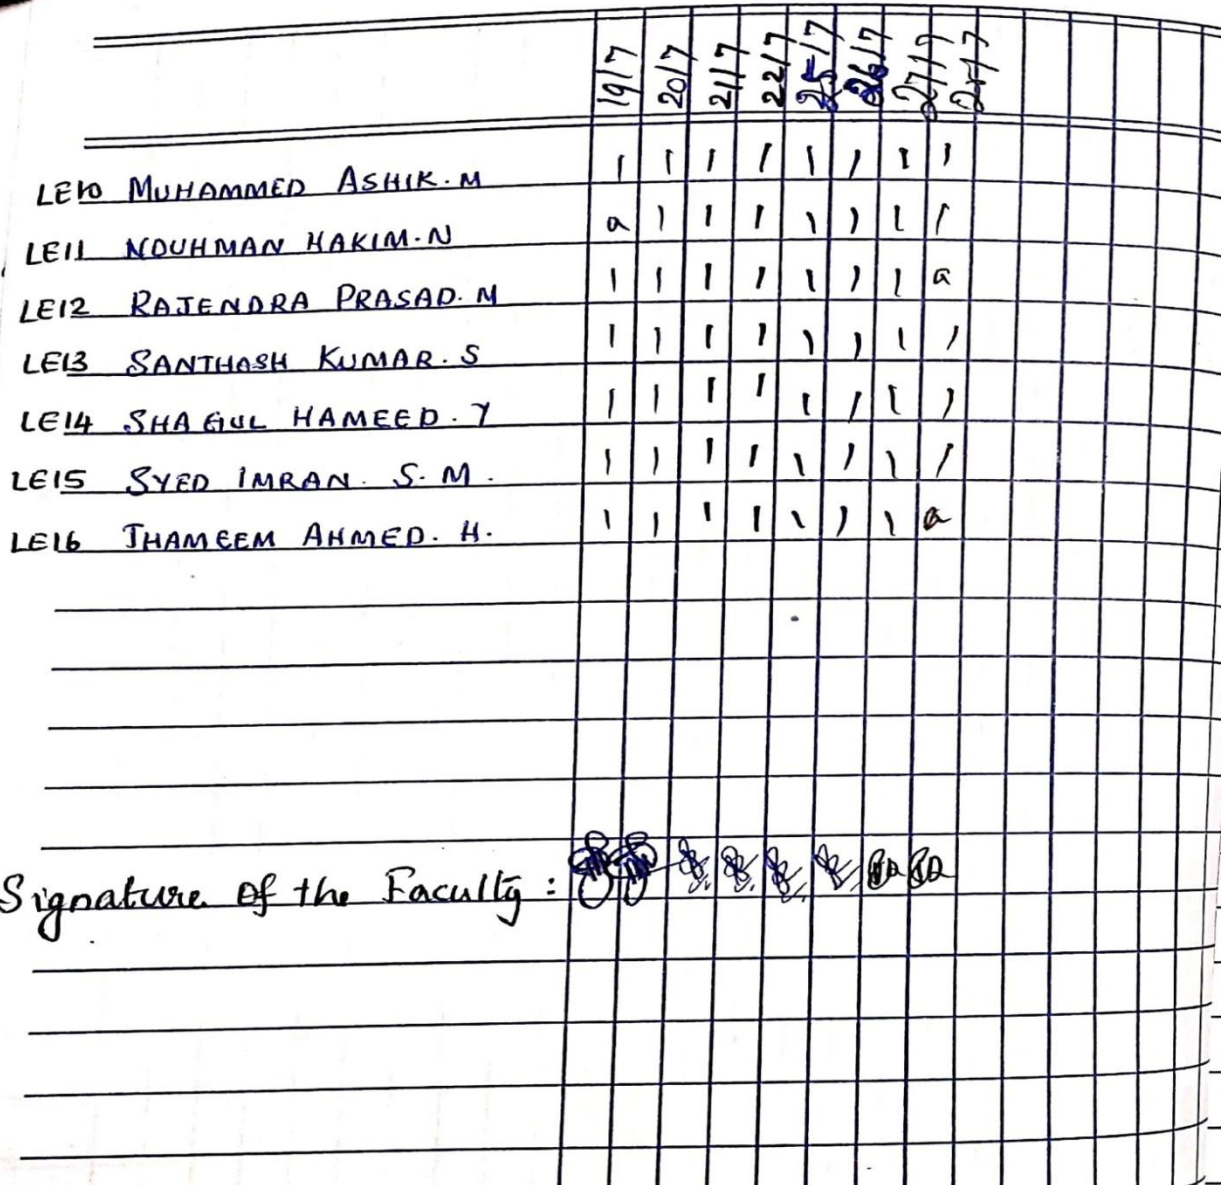 19/7 20/7 21/7 22/7 25/7 26/7 27/7
LE10 MUHAMMED ASHIK. M 1 1 1 1 1 1 1 1
LE11 NOUHMAN HAKIM. N a 1 1 1 1 1 1 1
LE12 RAJENDRA PRASAD. M 1 1 1 1 1 1 1 a
LE13 SANTHOSH KUMAR. S 1 1 1 1 1 1 1 1
LE14 SHAGUL HAMEED. Y 1 1 1 1 1 1 1 1
LE15 SYED IMRAN. S. M. 1 1 1 1 1 1 1 1
LE16 THAMEEM AHMED. H. 1 1 1 1 1 1 1 a
Signature of the Faculty :